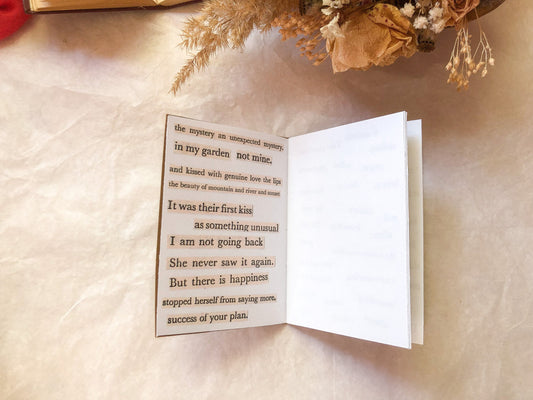 the mystery an unexpected mystery,
in my garden not mine,
and kissed with genuine love the lips
the beauty of mountain and river and sunset
It was their first kiss
as something unusual
I am not going back
She never saw it again.
But there is happiness
stopped herself from saying more,
success of your plan.